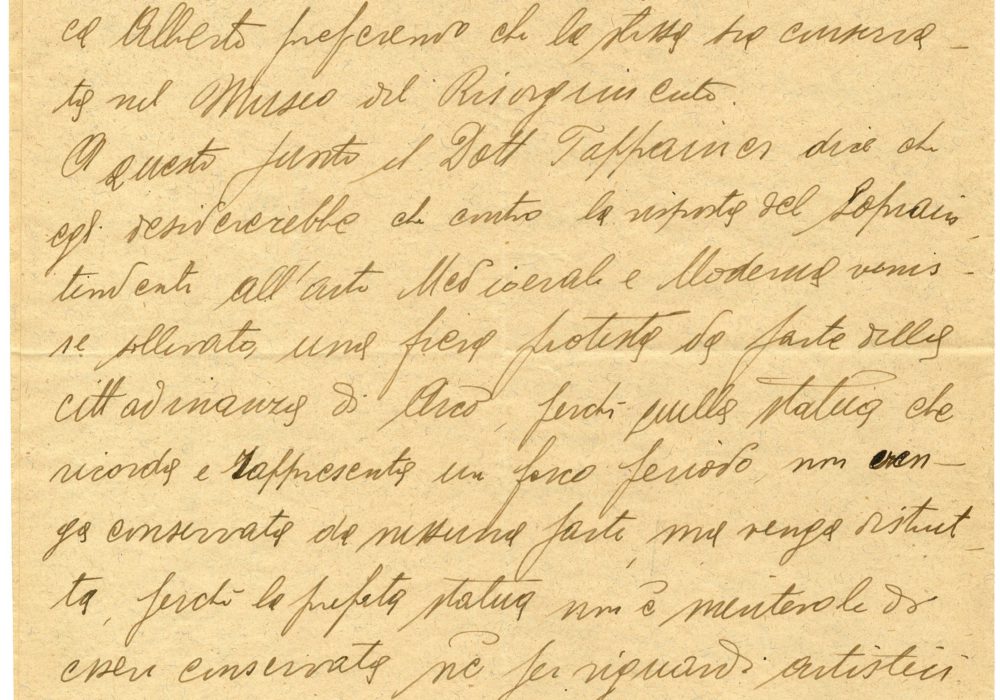 ca Alberto preferendo che la stessa sia conserva-
ta nel Museo del Risorgimento.
A questo punto il Dott Tappainer dice che
egli desidererebbe che contro la risposta del Soprain
tendente all'arte Medioevale e Moderna venis-
se sollevata una fiera protesta da parte della
cittadinanza di Arco, perchè quella statua che
ricorda e rappresenta un fosco periodo, non ven-
ga conservata da nessuna parte, ma venga distrut-
ta, perchè la prefata statua non è meritevole di
essere conservata nè per riguardi artistici